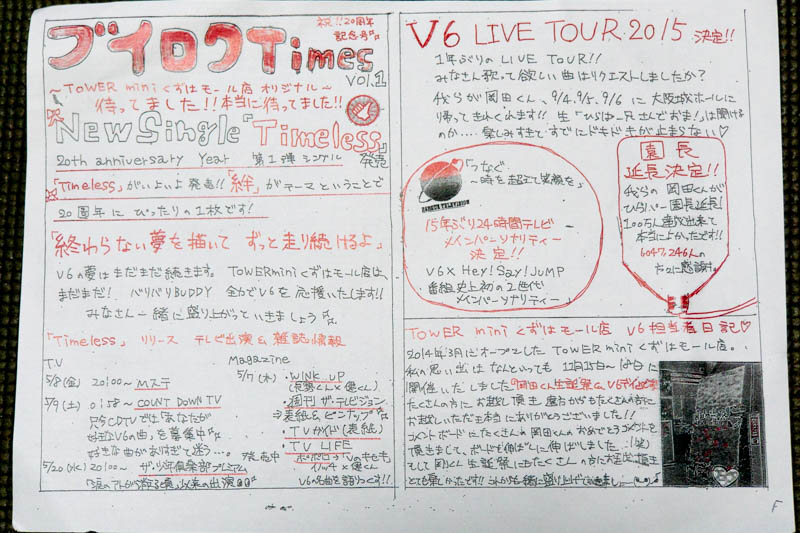 祝!!20周年
記念号
ブイロクTimes
VOL.1
〜TOWER mini くずはモール店 オリジナル〜
待ってました!!本当に待ってました!!
New Single「Timeless」
20th anniversary Year 第1弾シングル 発売
「Timeless」がいよいよ発売!!「絆」がテーマ ということで
20周年に ぴったりの1枚です!
「終わらない夢を描いて ずっと走り続けるよ」
V6の夢はまだまだ続きます。TOWERmini くずはモール店は、
まだまだ! バリバリBUDDY 全力でV6を応援いたします!!
みなさん一緒に盛り上がっていきましょう
「Timeless」リリース テレビ出演& 雑誌情報
TV
5/8(金) 20:00〜 Mステ
5/9(土) 0:58〜 COUNT DOWN TV
CDTVでは「あなたが
好きなV6の曲」を募集中
好きな曲がありすぎて迷う…
5/20(水) 20:00〜 ザ・少年倶楽部プレミアム
以来の出演
Magazine
5/7(木)・WINK UP
・週刊 ザ・テレビジョン
⇒表紙& ピンナップ
・TVガイド(表紙)
・TV LIFE
発売中
V6の名曲を語りつくす!!
V6 LIVE TOUR 2015 決定!!
1年ぶりの LIVE TOUR!!
みなさん歌って欲しい曲はリクエストしましたか?
我らが岡田くん、9/4.9/5.9/6 に 大阪城ホールに
帰ってきてくれます!! 生「ひらパー兄さんでおま!」は聞ける
のか…楽しみすぎて すでにドキドキが止まらない♡
「つなぐ
〜時を超えて笑顔を」
15年ぶり24時間テレビ
メインパーソナリティー
決定!!
V6× Hey! Say! JUMP
番組史上初の2世代
メインパーソナリティー
園長
延長決定!!
我らの 岡田くんが
ひらパー園長延長!
100万人達成出来て
本当によかったです!!
方々に感謝!!
TOWER mini くずはモール店 V6担当者日記♡
2014年3月にオープンした TOWER mini くずはモール店。
私の思い出は なんといっても 11月15日〜
開催いたしました「岡田くん生誕祭
たくさんの方に お越し頂き 遠方からもたくさんの方に
お越しいただき本当にありがとうございました!!
コメントボードに たくさんの岡田くんの おめでとうコメントを
頂きまして、ボードも伸ばしに伸ばしました…(笑)
そして岡田くん生誕祭にもたくさんの方に
とても楽しかったです!!
F